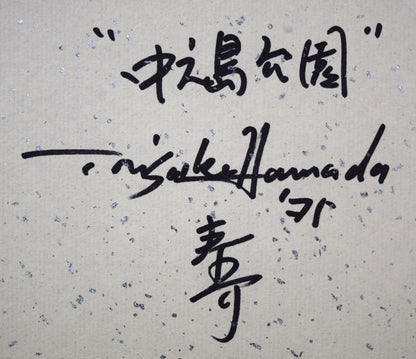 "中之島公園"
Hamada
'71
寿